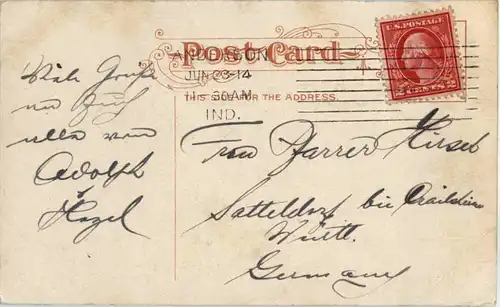 Post Card
ANDERSON
JUN 23-14
11 30 AM
IND.
THIS SIDE FOR THE ADDRESS.
U.S. POSTAGE
2 CENTS 2
Viele Grüße
an Euch
alle von
Adolph
Hazel
Frau Pfarrer Hirsch
Satteldorf bei Crailsheim
Württ.
Germany